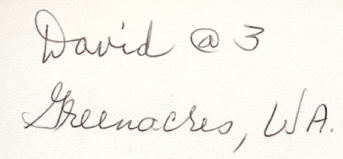 David @ 3
Greenacres, WA.